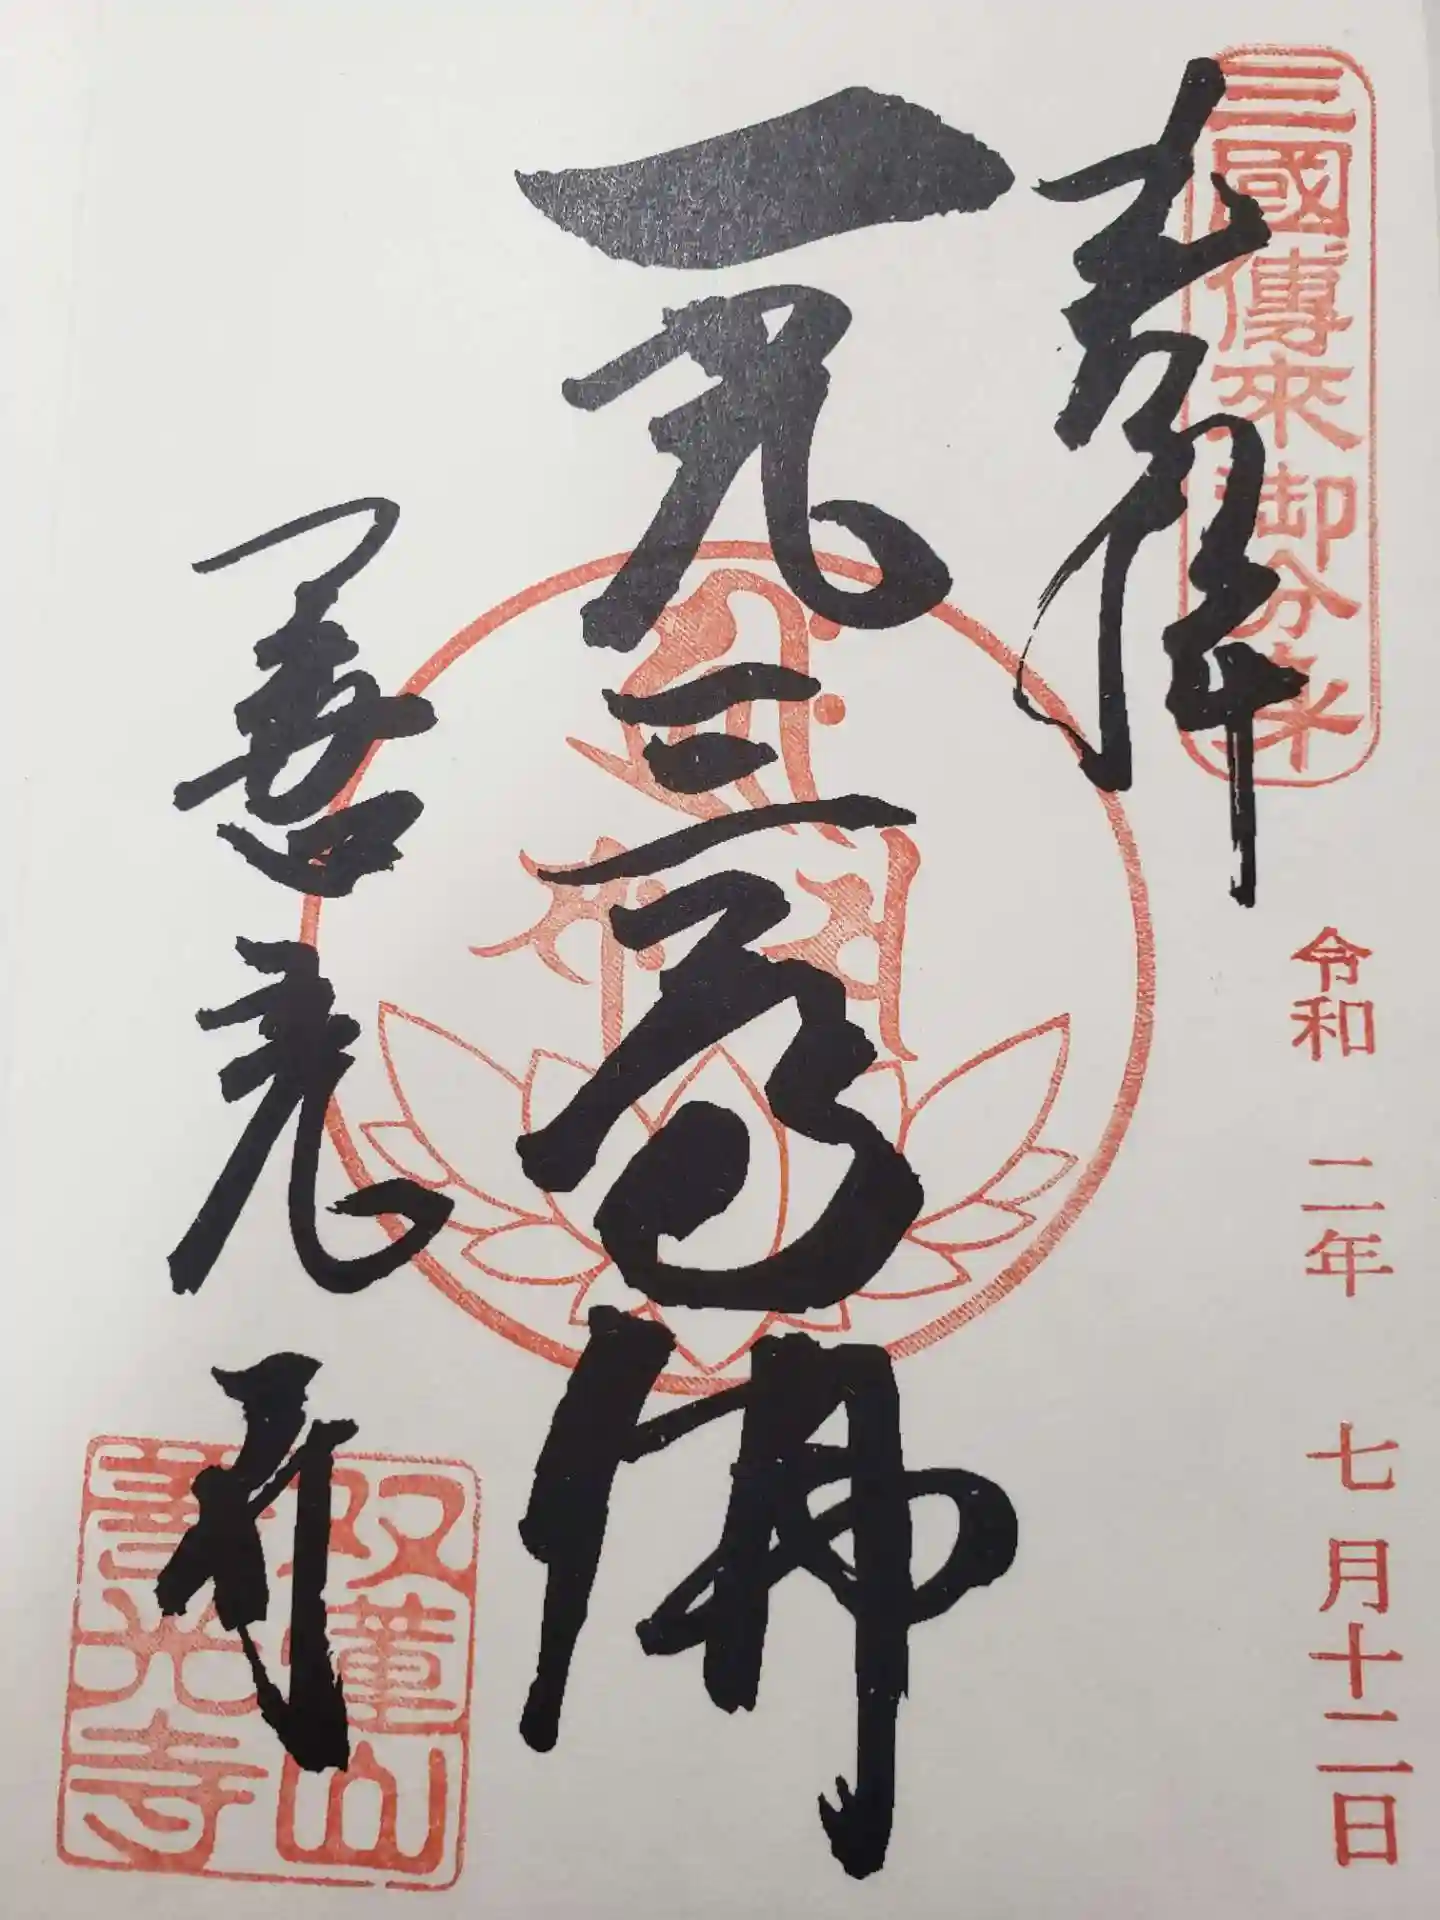 三國傳來御分身
奉拝
令和 二年 七月十二日
一光三尊佛
善光寺
双蓮山
善光寺